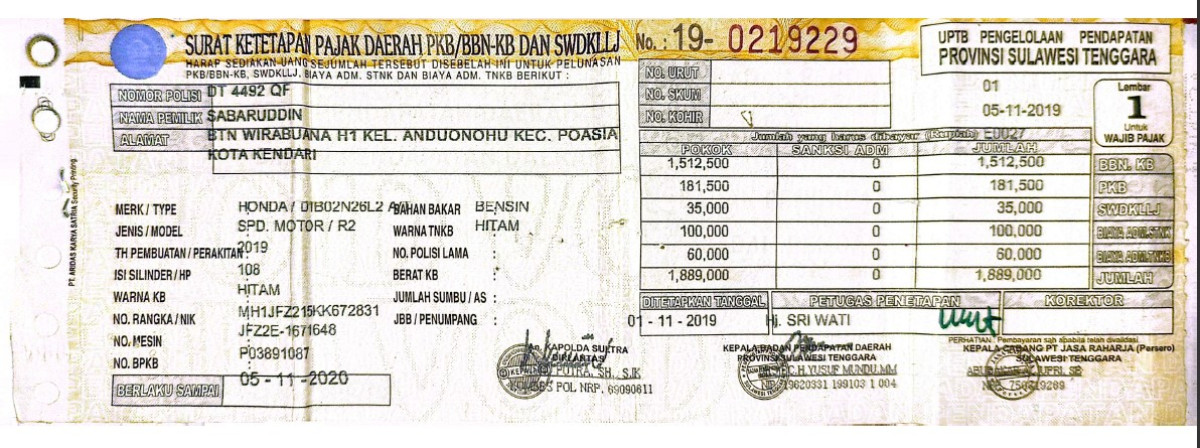 SURAT KETETAPAN PAJAK DAERAH PKB/BBN-KB DAN SWDKLLJ
HARAP SEDIAKAN UANG SEJUMLAH TERSEBUT DISEBELAH INI UNTUK PELUNASAN
PKB/BBN-KB, SWDKLLJ, BIAYA ADM. STNK DAN BIAYA ADM. TNKB BERIKUT :
No. : 19- 0219229
UPTB PENGELOLAAN PENDAPATAN
PROVINSI SULAWESI TENGGARA
NOMOR POLISI DT 4492 QF
NAMA PEMILIK SABARUDDIN
ALAMAT BTN WIRABUANA H1 KEL. ANDUONOHU KEC. POASIA
KOTA KENDARI
NO. URUT
NO. SKUM
NO. KOHIR
01
05-11-2019
Lembar
1
Untuk
WAJIB PAJAK
Jumlah yang harus dibayar (Rupiah) EU027
POKOK SANKSI ADM JUMLAH
1,512,500 0 1,512,500 BBN. KB
181,500 0 181,500 PKB
35,000 0 35,000 SWDKLLJ
100,000 0 100,000 BIAYA ADM.STNK
60,000 0 60,000 BIAYA ADM.TNKB
1,889,000 0 1,889,000 JUMLAH
MERK / TYPE HONDA / D1B02N26L2 A/T
JENIS / MODEL : SPD. MOTOR / R2
TH PEMBUATAN / PERAKITAN : 2019
ISI SILINDER / HP 108
WARNA KB : HITAM
NO. RANGKA / NIK MH1JFZ215KK672831
NO. MESIN : JFZ2E-1671648
NO. BPKB : P03891087
BERLAKU SAMPAI 05 - 11 - 2020
BAHAN BAKAR BENSIN
WARNA TNKB HITAM
NO. POLISI LAMA :
BERAT KB :
JUMLAH SUMBU / AS :
JBB / PENUMPANG :
DITETAPKAN TANGGAL PETUGAS PENETAPAN KOREKTOR
01 - 11 - 2019 Hj. SRI WATI
PERHATIAN : Pembayaran sah apabila telah divalidasi
an. KAPOLDA SULTRA
DIRLANTAS
PUTRA, SH., S.IK
KOMBES POL NRP. 69090611
KEPALA BADAN PENDAPATAN DAERAH
PROVINSI SULAWESI TENGGARA
H. YUSUF MUNDU, MM
NIP. 19620331 199103 1 004
KEPALA CABANG PT JASA RAHARJA (Persero)
SULAWESI TENGGARA
PT. ARIDAS KARYA SATRIA Security Printing